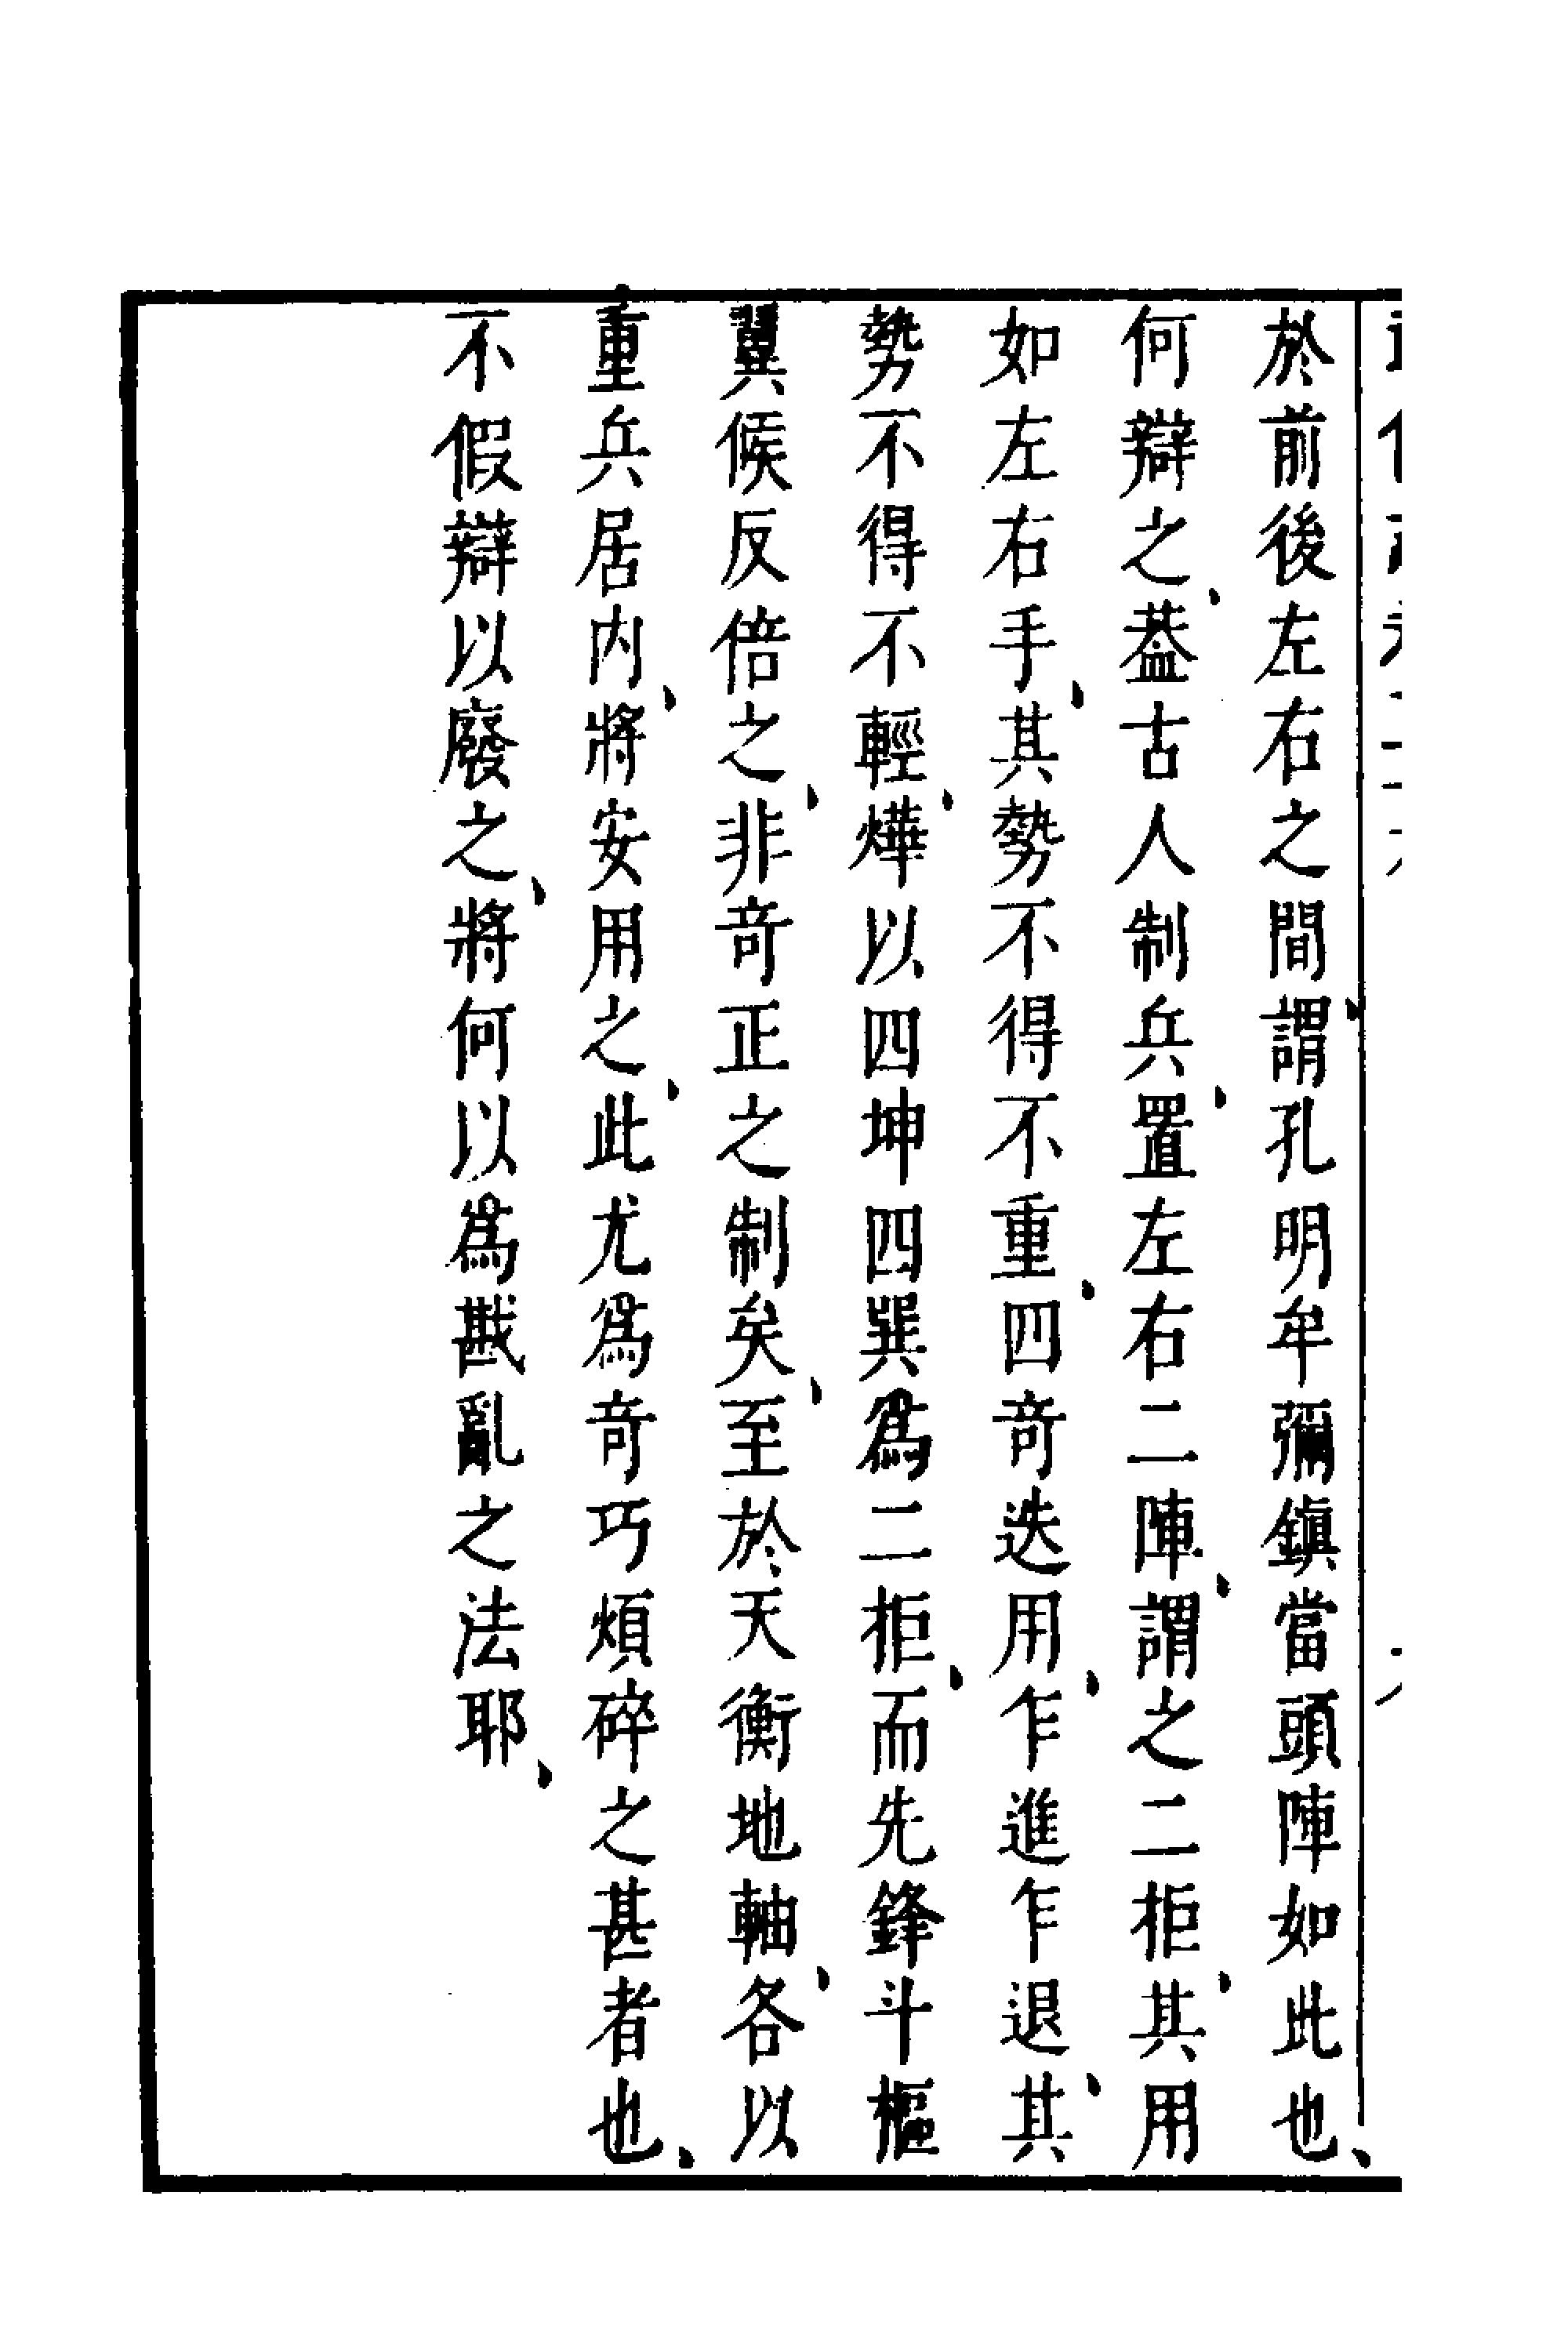 於前後左右之間、謂孔明牟彌鎮當頭陣如此也、
何辯之、葢古人制兵、置左右二陣、謂之二拒、其用
如左右手、其勢不得不重、四竒迭用、乍進乍退、其
勢不得不輕、燁以四坤四巽爲二拒、而先鋒斗樞
翼候反倍之、非竒正之制矣、至於天衡地軸、各以
重兵居内、將安用之、此尤爲竒巧煩碎之甚者也、
不假辯以廢之、將何以爲戡亂之法耶、